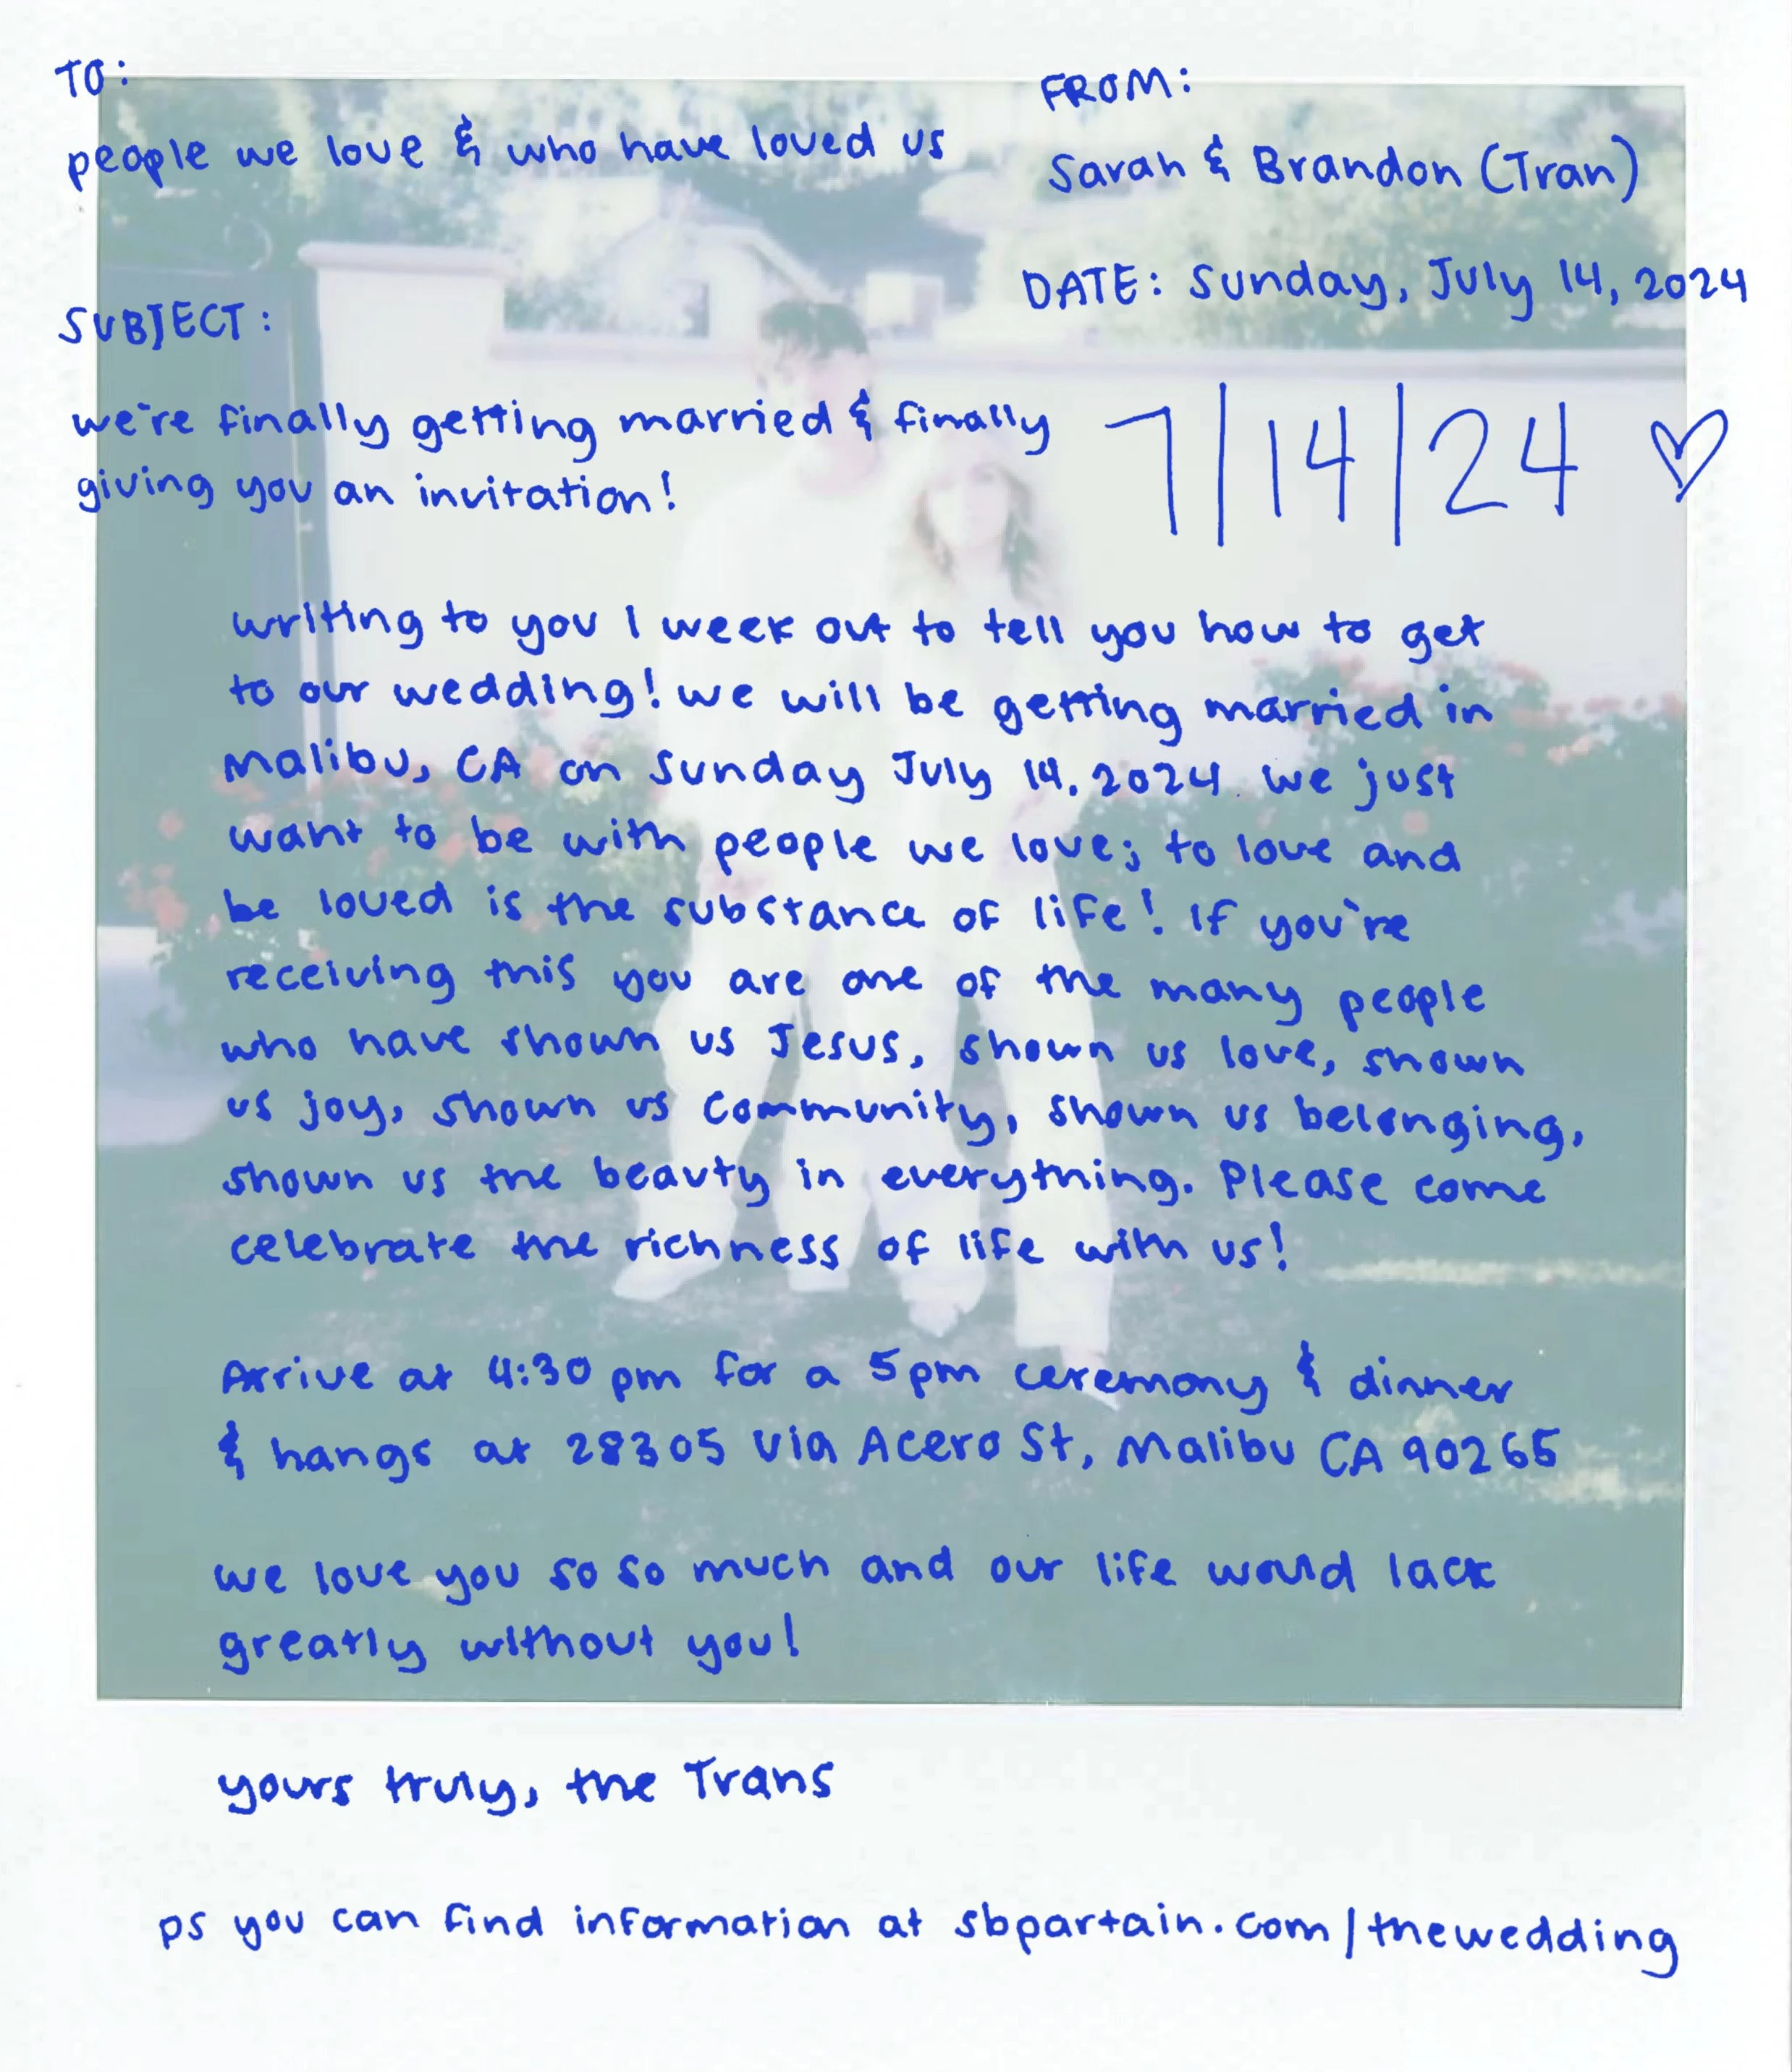 TO:
people we love & who have loved us
FROM:
Sarah & Brandon (Tran)
DATE: Sunday, July 14, 2024
SUBJECT:
we're finally getting married & finally
giving you an invitation!
7/14/24 ♡
writing to you 1 week out to tell you how to get
to our wedding! we will be getting married in
Malibu, CA on Sunday July 14, 2024. we just
want to be with people we love; to love and
be loved is the substance of life! If you're
receiving this you are one of the many people
who have shown us Jesus, shown us love, shown
us joy, shown us community, shown us belonging,
shown us the beauty in everything. Please come
celebrate the richness of life with us!
Arrive at 4:30 pm for a 5pm ceremony & dinner
& hangs at 28305 Via Acero St, Malibu CA 90265
we love you so so much and our life would lack
greatly without you!
yours truly, the Trans
ps you can find information at sbpartain.com/thewedding